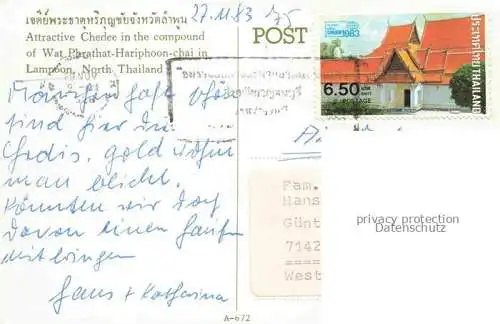 เจดีย์พระธาตุหริภุญชัยจังหวัดลำพูน
Attractive Chedee in the compound
of Wat Phrathat-Hariphoon-chai in
Lampoon, North Thailand
27.11.83
POST
1983
ประเทศไทย THAILAND
6.50
POSTAGE
sind hier die
Chedis, gold wohin
man blickt.
Könnten wir doch
davon einen Haufen
mitbringen
Hans + Katharina
Fam.
Hans
Günt
7142
====
West
privacy protection
Datenschutz
A-672